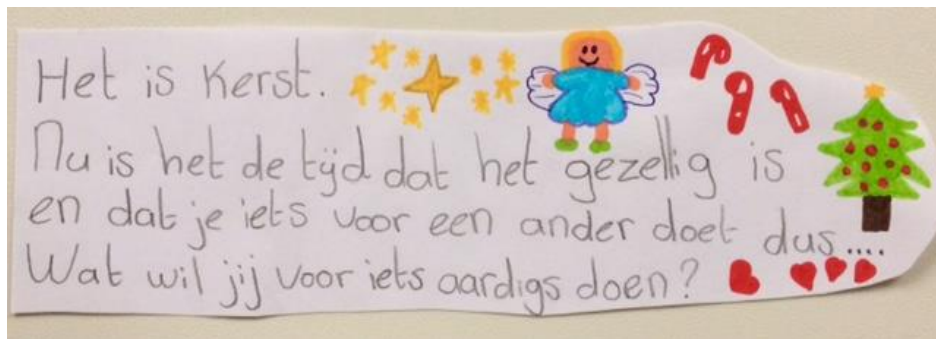 Het is Kerst.
Nu is het de tijd dat het gezellig is
en dat je iets voor een ander doet dus....
Wat wil jij voor iets aardigs doen?